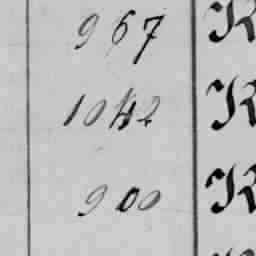 967 K
1042 K
900 K